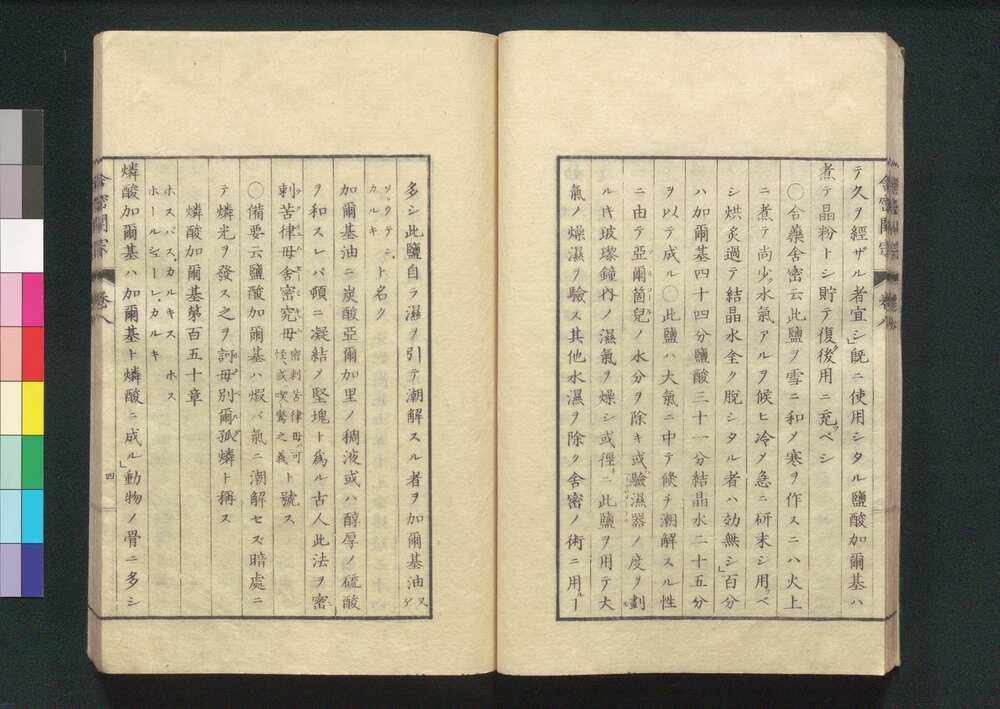 テ久ヲ經ザル者宜シ」既ニ使用シタル鹽酸加爾基ハ
煮テ晶粉トシ貯テ復後用ニ充ツベシ
〇合藥舍密云此鹽ヲ雪ニ和メ寒ヲ作スニハ火上
ニ煮テ尚少ク水氣アルヲ候ヒ冷メ急ニ研末シ用ベ
シ烘炙過テ結晶水全ク脱シタル者ハ効無シ」百分
ハ加爾基四十四分鹽酸三十一分結晶水二十五分
ヲ以テ成ル〇此鹽ハ大氣ニ中テ候チ潮解スル性
ニ由テ亞爾箇兒ノ水分ヲ除キ或驗濕器ノ度ヲ劃
ル時玻瓈鐘内ノ濕氣ヲ燥シ或徑ニ此鹽ヲ用テ大
氣ノ燥濕ヲ驗ス其他水濕ヲ除ク舍密ノ術ニ用ルヿ
多シ此鹽自ラ濕ヲ引テ潮解スル者ヲ加爾基油
ト名ク
加爾基油ニ炭酸亞爾加里ノ稠液或ハ醇厚ノ硫酸
ヲ和スレバ頓ニ凝結メ堅塊ト爲ル古人此法ヲ密
刺苦律母舍密究母密刺苦律母ハ可怪、或喫驚之義ト號ス
〇備要云鹽酸加爾基ハ煆バ氣ニ潮解セズ暗處ニ
テ燐光ヲ發ス之ヲ訶母別爾孤燐ト稱ス
燐酸加爾基第百五十章
ホスパス、カルキス ホス
ホールシューレ、カルキ
燐酸加爾基ハ加爾基ト燐酸ニ成ル」動物ノ骨ニ多シ
舍密開宗
卷八
四